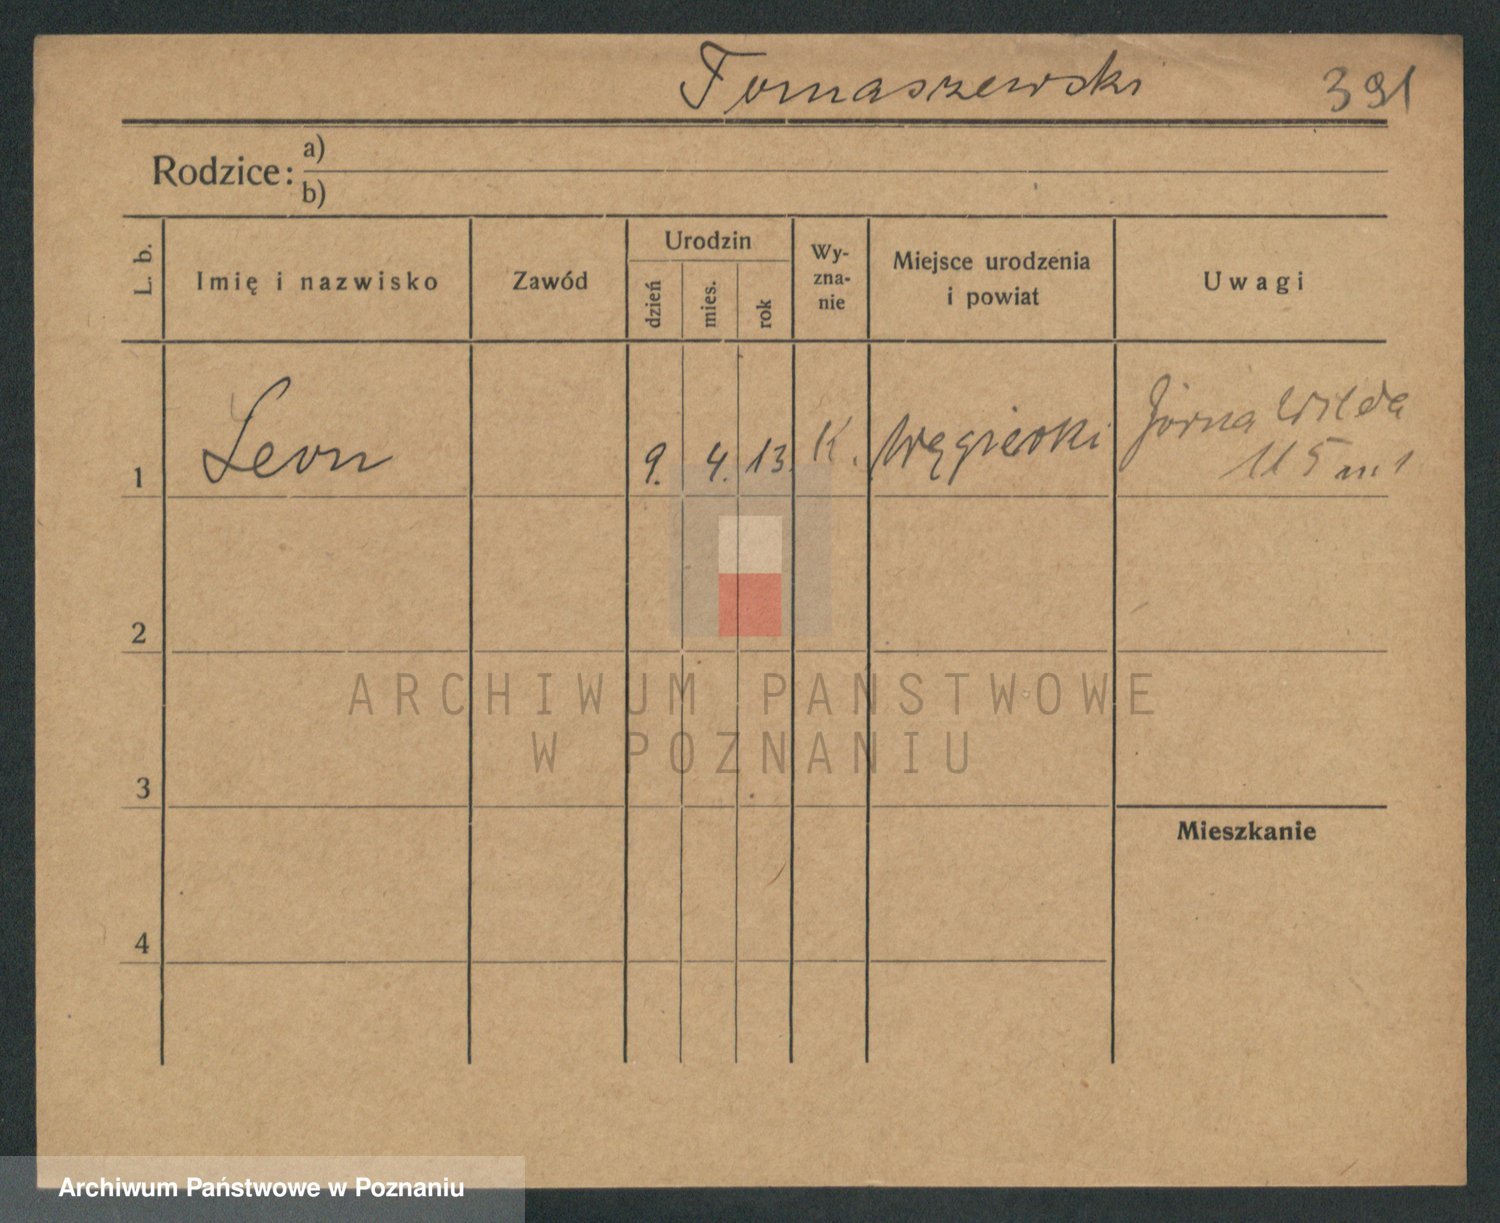 Tomaszewski 391
Rodzice: a)
b)
L. b.
Imię i nazwisko
Zawód
Urodzin
dzień
mies.
rok
Wy-
zna-
nie
Miejsce urodzenia
i powiat
Uwagi
1 Leon 9. 4. 13. K. Węgierki Górna Wilda
115
2
3
4
Mieszkanie
ARCHIWUM PAŃSTWOWE
W POZNANIU
Archiwum Państwowe w Poznaniu